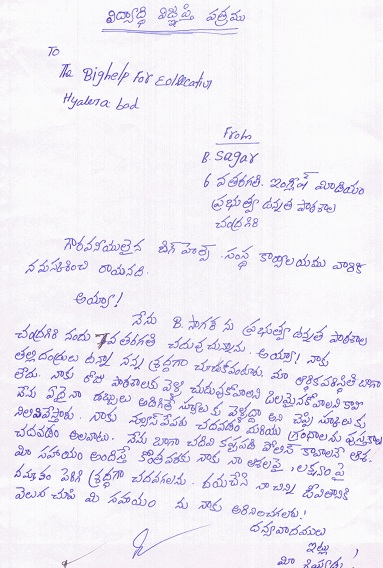 విద్యార్థి విజ్ఞప్తి పత్రము
To
The Bighelp For Education
Hyderabad
From
B. Sagar
6 వ తరగతి. ఇంగ్లీష్ మీడియం
ప్రభుత్వ ఉన్నత పాఠశాల
చంద్రగిరి
గౌరవనీయులైన బిగ్ హెల్ప్ సంస్థ కార్యాలయము వారికి
నమస్కరించి రాయునది.
అయ్యా!
నేను B. సాగర్ ను ప్రభుత్వ ఉన్నత పాఠశాల
చంద్రగిరి నందు 7వ తరగతి చదువుచున్నాను. అయ్యా! నాకు
తల్లిదండ్రులు ఉన్నా నన్ను శ్రద్ధగా చూడకపోవడం. మా ఆర్థిక పరిస్థితి బాగా
లేదు. నాకు రోజు పాఠశాలకు వెళ్ళి చదువుకోవాలని
నేను ఏదైనా డబ్బులు అడిగితే స్కూలుకు అని చెప్పి స్కూలుకు
నాకు చదవడం మరియు గ్రంథాలను పుస్తకాలు
చదవడం అలవాటు. నేను బాగా చదివి పోలీస్ కావాలనే ఆశ.
మీ సహాయం అందిస్తే కొంతవరకు నాకు నా ఆశలపై, లక్ష్యం పై
నమ్మకం పెరిగి శ్రద్ధగా చదవగలను. దయచేసి నా చిన్ని జీవితానికి
వెలుగు చూపి మీ సహాయం ను నాకు అందించగలరు!
ధన్యవాదములు
ఇట్లు,
మీ